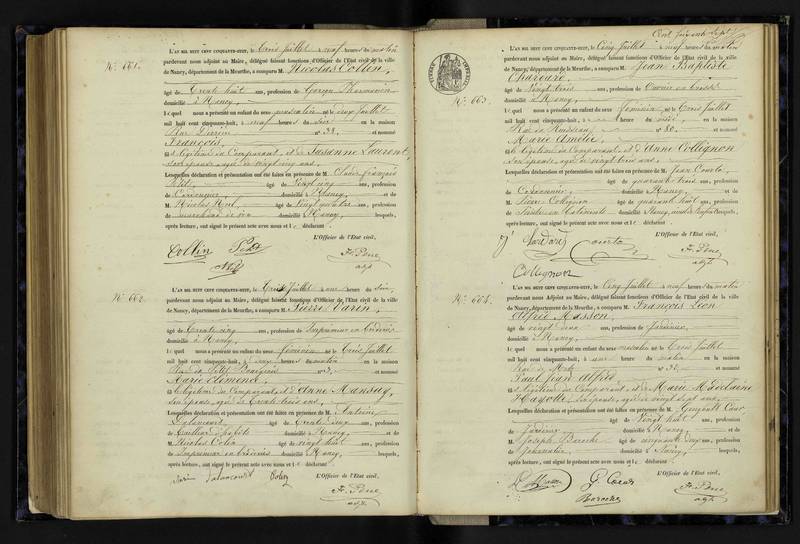 N° 661.
L'AN MIL HUIT CENT CINQUANTE-HUIT, le Trois Juillet à neuf heures du matin
pardevant nous adjoint au Maire, délégué faisant fonctions d'Officier de l'Etat civil de la ville
de Nancy, département de la Meurthe, a comparu M. Nicolas Collin,
âgé de Trente huit ans, profession de Garçon
domicilié à Nancy,
lequel nous a présenté un enfant du sexe masculin né le deux Juillet
mil huit cent cinquante-huit, à neuf heures du soir en la maison
Rue n° 38, et nommé
François,
fils légitime du Comparant, et de Suzanne Laurent,
son épouse, âgée de vingt cinq ans.
Lesquelles déclaration et présentation ont été faites en présence de M. François
Petit, âgé de vingt cinq ans, profession
de domicilié à Nancy, et de
M. Nicolas âgé de vingt quatre ans, profession
de marchand de vin domicilié à Nancy, lesquels,
après lecture, ont signé le présent acte avec nous et le déclarant
L'Officier de l'Etat civil,
Collin Petit
adjt
N° 662.
L'AN MIL HUIT CENT CINQUANTE-HUIT, le Trois Juillet à une heure du soir,
pardevant nous Adjoint au Maire, délégué faisant fonctions d'Officier de l'Etat civil de la ville
de Nancy, département de la Meurthe, a comparu M. Pierre Varin,
âgé de Trente cinq ans, profession de Imprimeur en
domicilié à Nancy,
lequel nous a présenté un enfant du sexe féminin né le Trois Juillet
mil huit cent cinquante-huit, à heures du matin en la maison
Rue du Petit Bourgeois n° 3, et nommé
Marie Clémence,
fille légitime du Comparant, et d'Anne Mansuy,
son épouse, âgée de Trente trois ans,
Lesquelles déclaration et présentation ont été faites en présence de M. Antoine
Dalancourt, âgé de Trente deux ans, profession
de Tailleur d'habits domicilié à Nancy, et de
M. Nicolas Colin âgé de vingt huit ans, profession
de Imprimeur en domicilié à Nancy, lesquels,
après lecture, ont signé le présent acte avec nous et le déclarant
L'Officier de l'Etat civil,
Varin Dalancourt Colin
adjt
Cent soixante sept
N° 663.
L'AN MIL HUIT CENT CINQUANTE-HUIT, le Cinq Juillet à neuf heures du matin
pardevant nous adjoint au Maire, délégué faisant fonctions d'Officier de l'Etat civil de la ville
de Nancy, département de la Meurthe, a comparu M. Jean Baptiste
âgé de Vingt trois ans, profession de Ouvrier en
domicilié à Nancy,
lequel nous a présenté un enfant du sexe féminin né le Trois Juillet
mil huit cent cinquante-huit, à en la maison
Rue du Ruisseau n° 80, et nommé
Marie Amélie,
fille légitime du Comparant, et d'Anne Collignon
son épouse, âgée de vingt trois ans,
Lesquelles déclaration et présentation ont été faites en présence de M. Jean Courta,
âgé de quarante trois ans, profession
de Cordonnier, domicilié à Nancy, et de
M. Collignon âgé de quarante huit ans, profession
de domicilié à Nancy, lesquels,
après lecture, ont signé le présent acte avec nous et le déclarant
L'Officier de l'Etat civil,
Courta
adjt
Collignon
N° 664.
L'AN MIL HUIT CENT CINQUANTE-HUIT, le Cinq Juillet à neuf heures du matin
pardevant nous Adjoint au Maire, délégué faisant fonctions d'Officier de l'Etat civil de la ville
de Nancy, département de la Meurthe, a comparu M. François Léon
Alfred Masson,
âgé de vingt deux ans, profession de
domicilié à Nancy,
lequel nous a présenté un enfant du sexe masculin né le Trois Juillet
mil huit cent cinquante-huit, à une heure du matin en la maison
Rue de Metz n° 32, et nommé
Paul Jean Alfred,
fils légitime du Comparant, et de Marie Madelaine
Hayotte, son épouse, âgée de vingt sept ans,
Lesquelles déclaration et présentation ont été faites en présence de M.
âgé de Vingt huit ans, profession
de Jardinier domicilié à Nancy, et de
M. Joseph Baroche âgé de cinquante deux ans, profession
de Journalier, domicilié à Nancy, lesquels,
après lecture, ont signé le présent acte avec nous et le déclarant
L'Officier de l'Etat civil,
Baroche
adjt